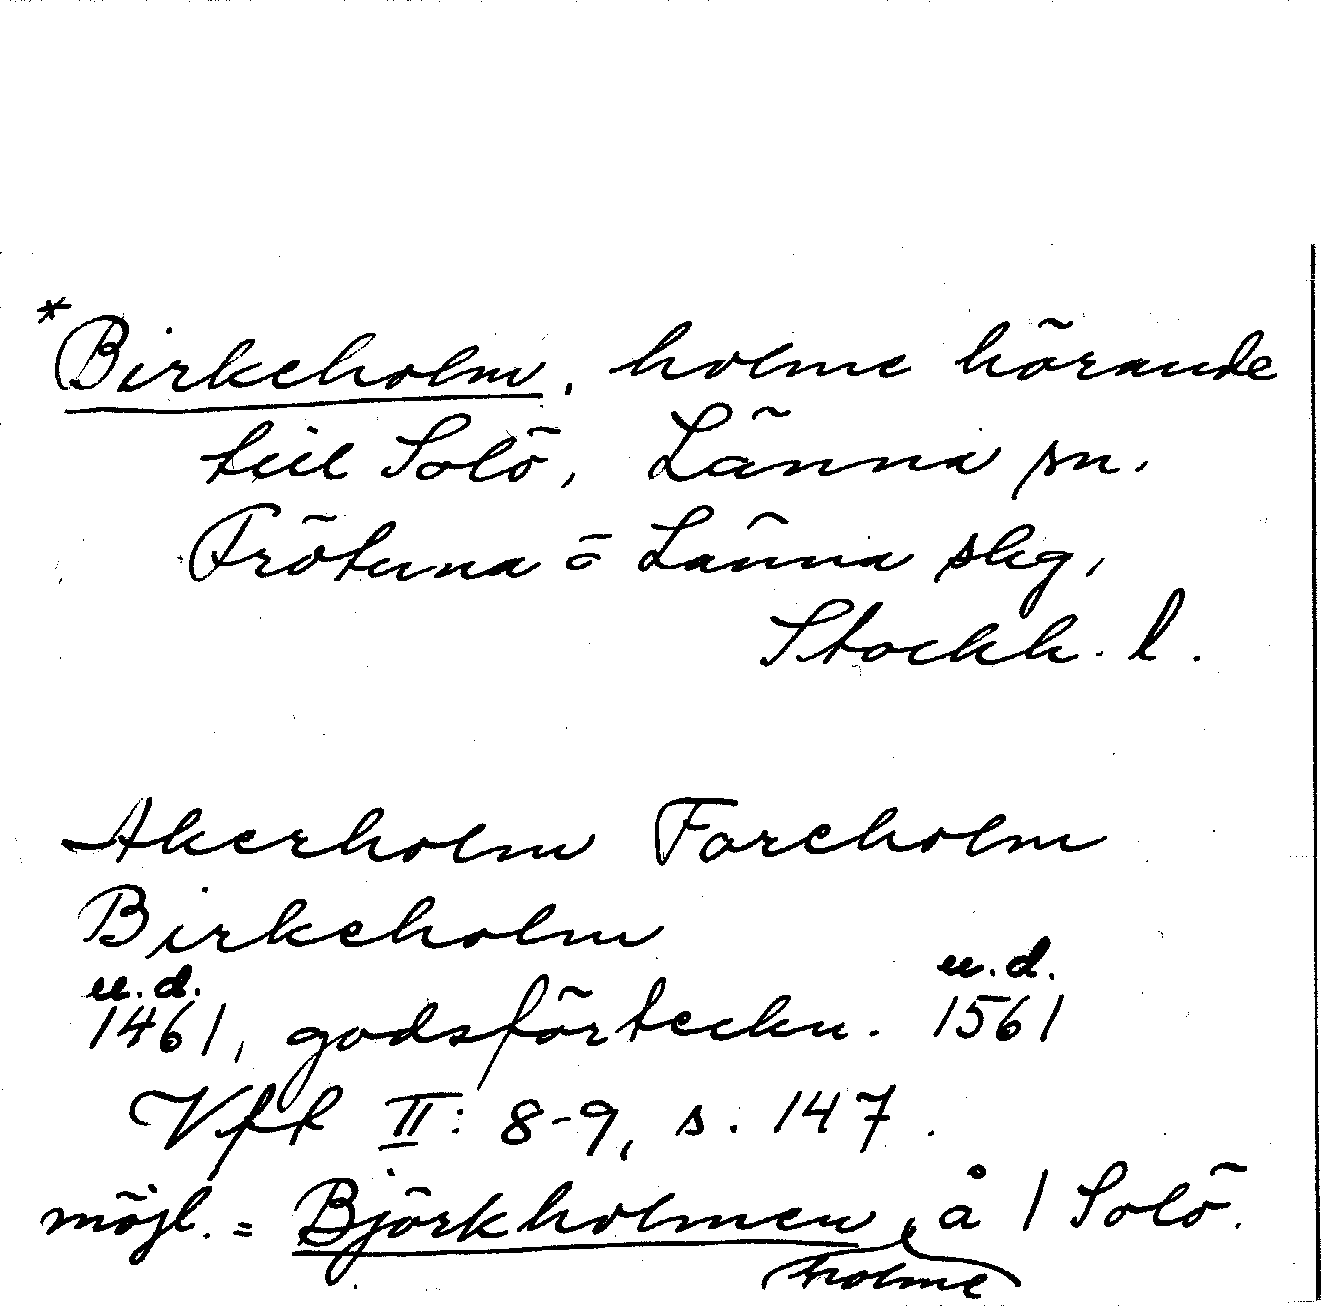 *Birkeholm, holme hörande
till Solö, Länna sn.
Frötuna o Länna slg,
Stockh. l.
Akerholm Foreholm
Birkeholm
u.d. u.d.
1461, godsförteckn. 1561
Vff II: 8-9, s. 147.
möjl. = Björkholmen, å / Solö.
holme